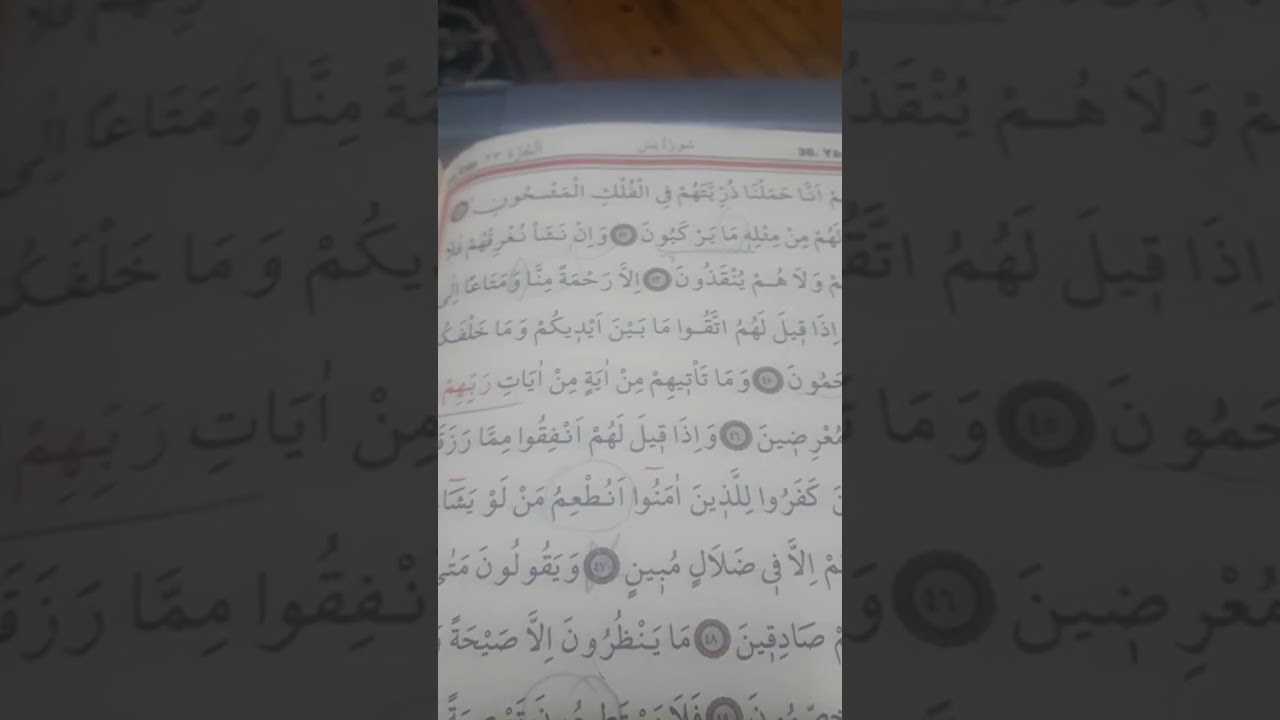 اَلْجُزْءُ ٢٣ سُورَةُ يٰسٓ 36. YÂ
اَنَّا حَمَلْنَا ذُرِّيَّتَهُمْ فِي الْفُلْكِ الْمَشْحُونِ
لَهُمْ مِنْ مِثْلِه۪ مَا يَرْكَبُونَ ﴿٤٢﴾ وَاِنْ نَشَأْ نُغْرِقْهُمْ فَلَا
وَلَا هُمْ يُنْقَذُونَ ﴿٤٣﴾ اِلَّا رَحْمَةً مِنَّا وَمَتَاعًا اِلٰى
اِذَا ق۪يلَ لَهُمُ اتَّقُوا مَا بَيْنَ اَيْد۪يكُمْ وَمَا خَلْفَكُ
حَمُونَ ﴿٤٥﴾ وَمَا تَأْت۪يهِمْ مِنْ اٰيَةٍ مِنْ اٰيَاتِ رَبِّهِمْ
مُعْرِض۪ينَ ﴿٤٦﴾ وَاِذَا ق۪يلَ لَهُمْ اَنْفِقُوا مِمَّا رَزَقَ
كَفَرُوا لِلَّذ۪ينَ اٰمَنُٓوا اَنُطْعِمُ مَنْ لَوْ يَشَٓا
اِلَّا ف۪ي ضَلَالٍ مُب۪ينٍ ﴿٤٧﴾ وَيَقُولُونَ مَتٰى
صَادِق۪ينَ ﴿٤٨﴾ مَا يَنْظُرُونَ اِلَّا صَيْحَةً